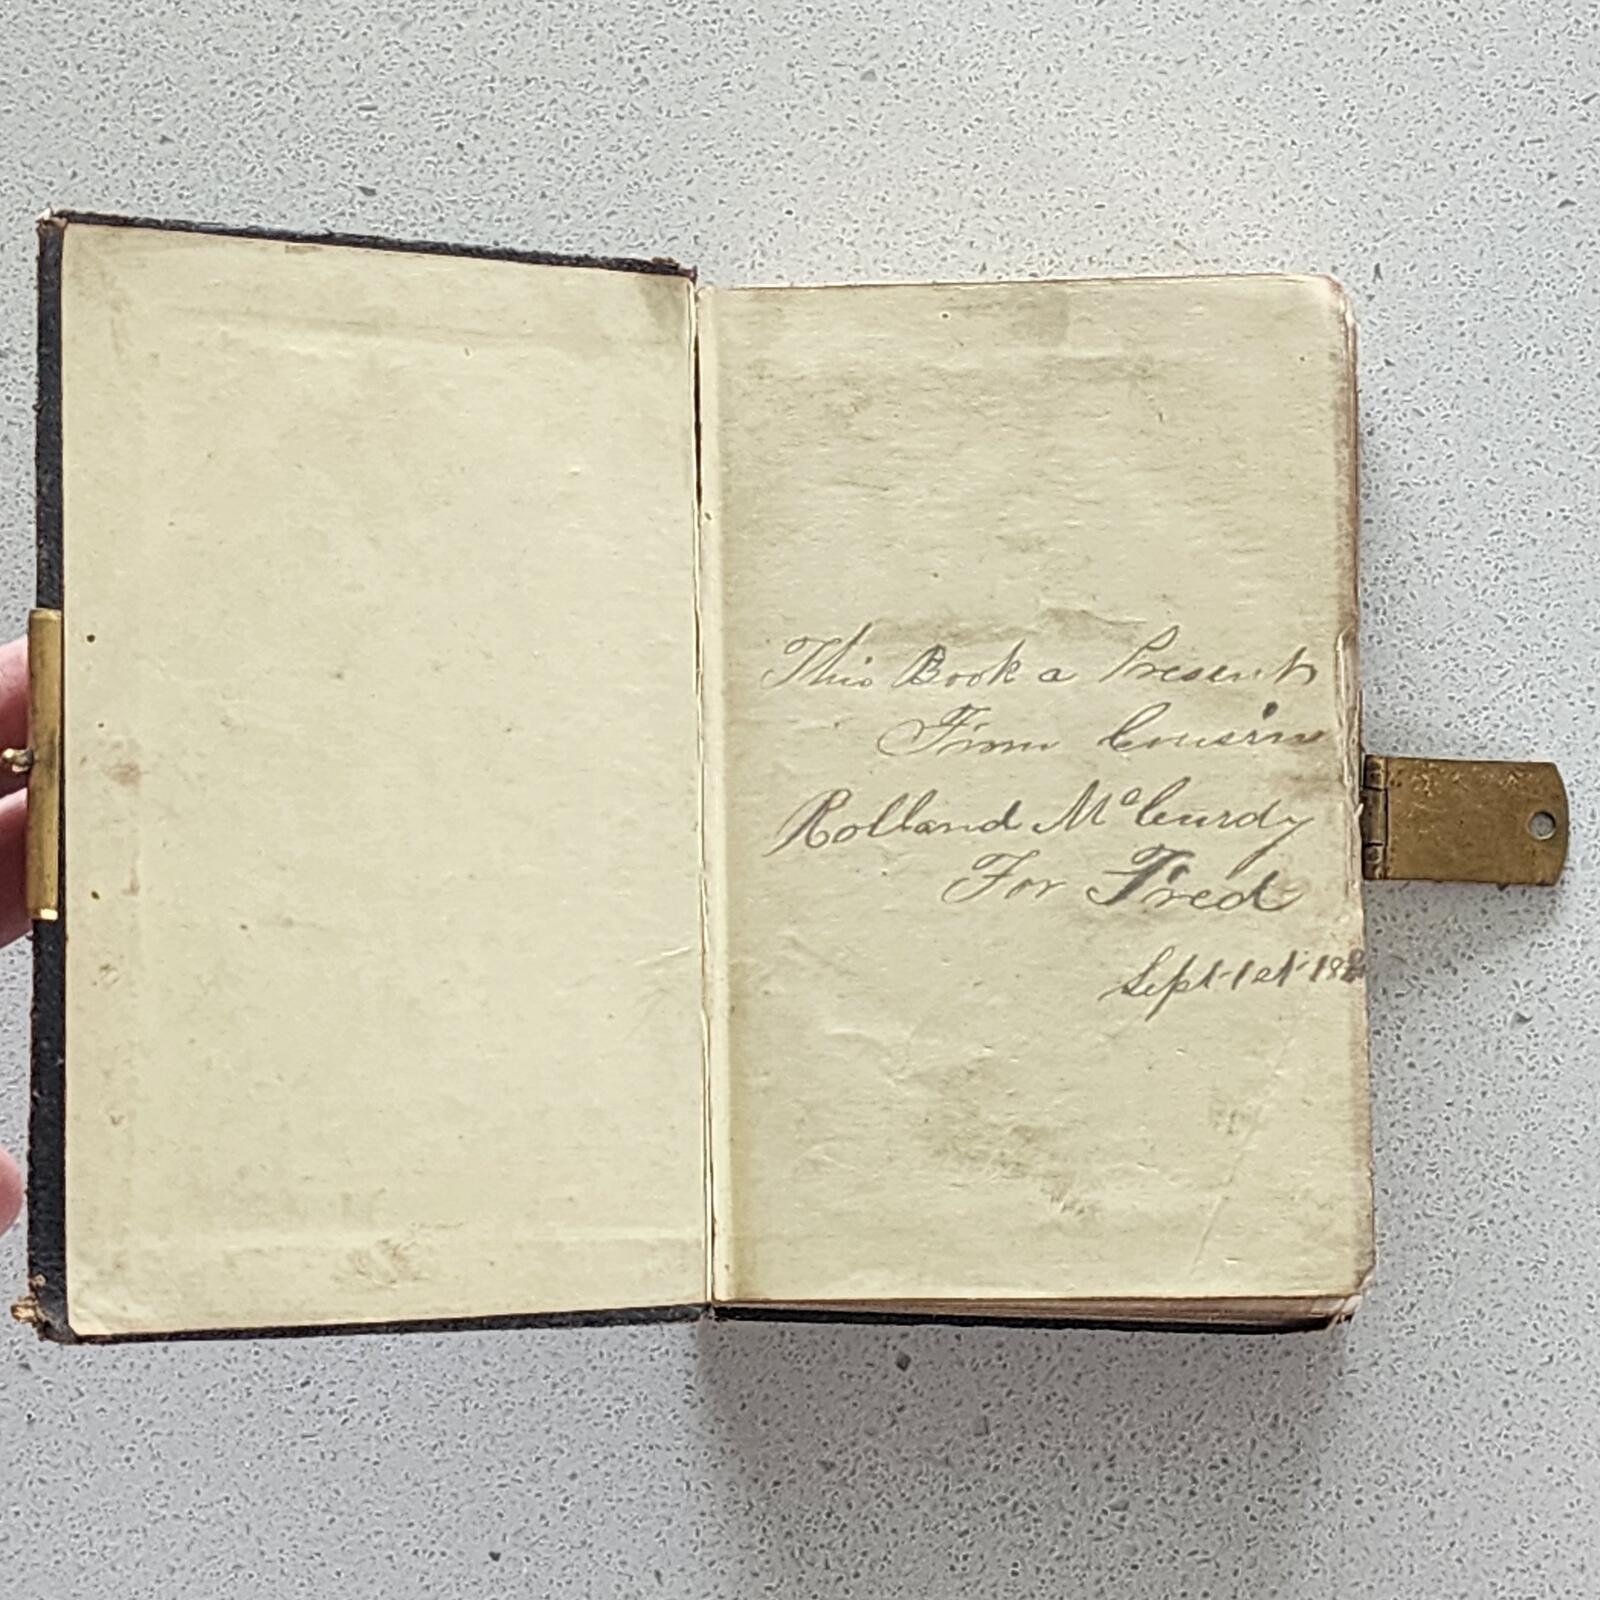 This Book a Present
From Cousin
Rolland Mc Curdy
For Fred
Sept 1st